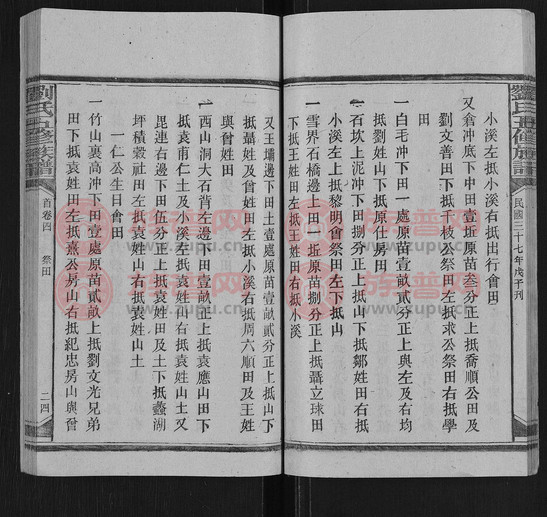 劉氏四修族譜
民國三十七年戊子刊
小溪左抵小溪右抵出行會田
又倉沖底下中田壹坵原苗叁分正上抵喬順公田及
劉文善田下抵千枝公祭田左抵求公祭田右抵學
田
一白毛冲下田一處原苗壹畝貳分正上與左及右均
抵劉姓山下抵原仕房田
一石坎上泥冲下田捌分正上抵山下抵鄒姓田右抵
小溪左上抵黎明會祭田左下抵山
一雪界石橋邊上田一坵原苗捌分正上抵聶立球田
下抵王姓田左抵王姓田右抵小溪
又王壩邊下田土壹處原苗壹畝貳分正上抵山下
抵聶姓及曾姓田左抵小溪右抵周六順田及王姓
與曾姓田
一西山洞大石背左邊下田壹畝正上抵袁應山田下
抵袁甫仁土及小溪左抵袁姓田右抵袁姓山土又
毘連右邊下田伍分正上抵袁姓田及土下抵蠡湖
坪積穀社田左抵袁姓山右抵袁姓山土
一仁公生日會田
一竹山裏高沖下田壹處原苗貳畝上抵劉文光兄弟
田下抵袁姓田左抵熹公房山右抵紀忠房山與曾
劉氏四修族譜
首卷四
祭田
二四
族譜网
zupu.cn